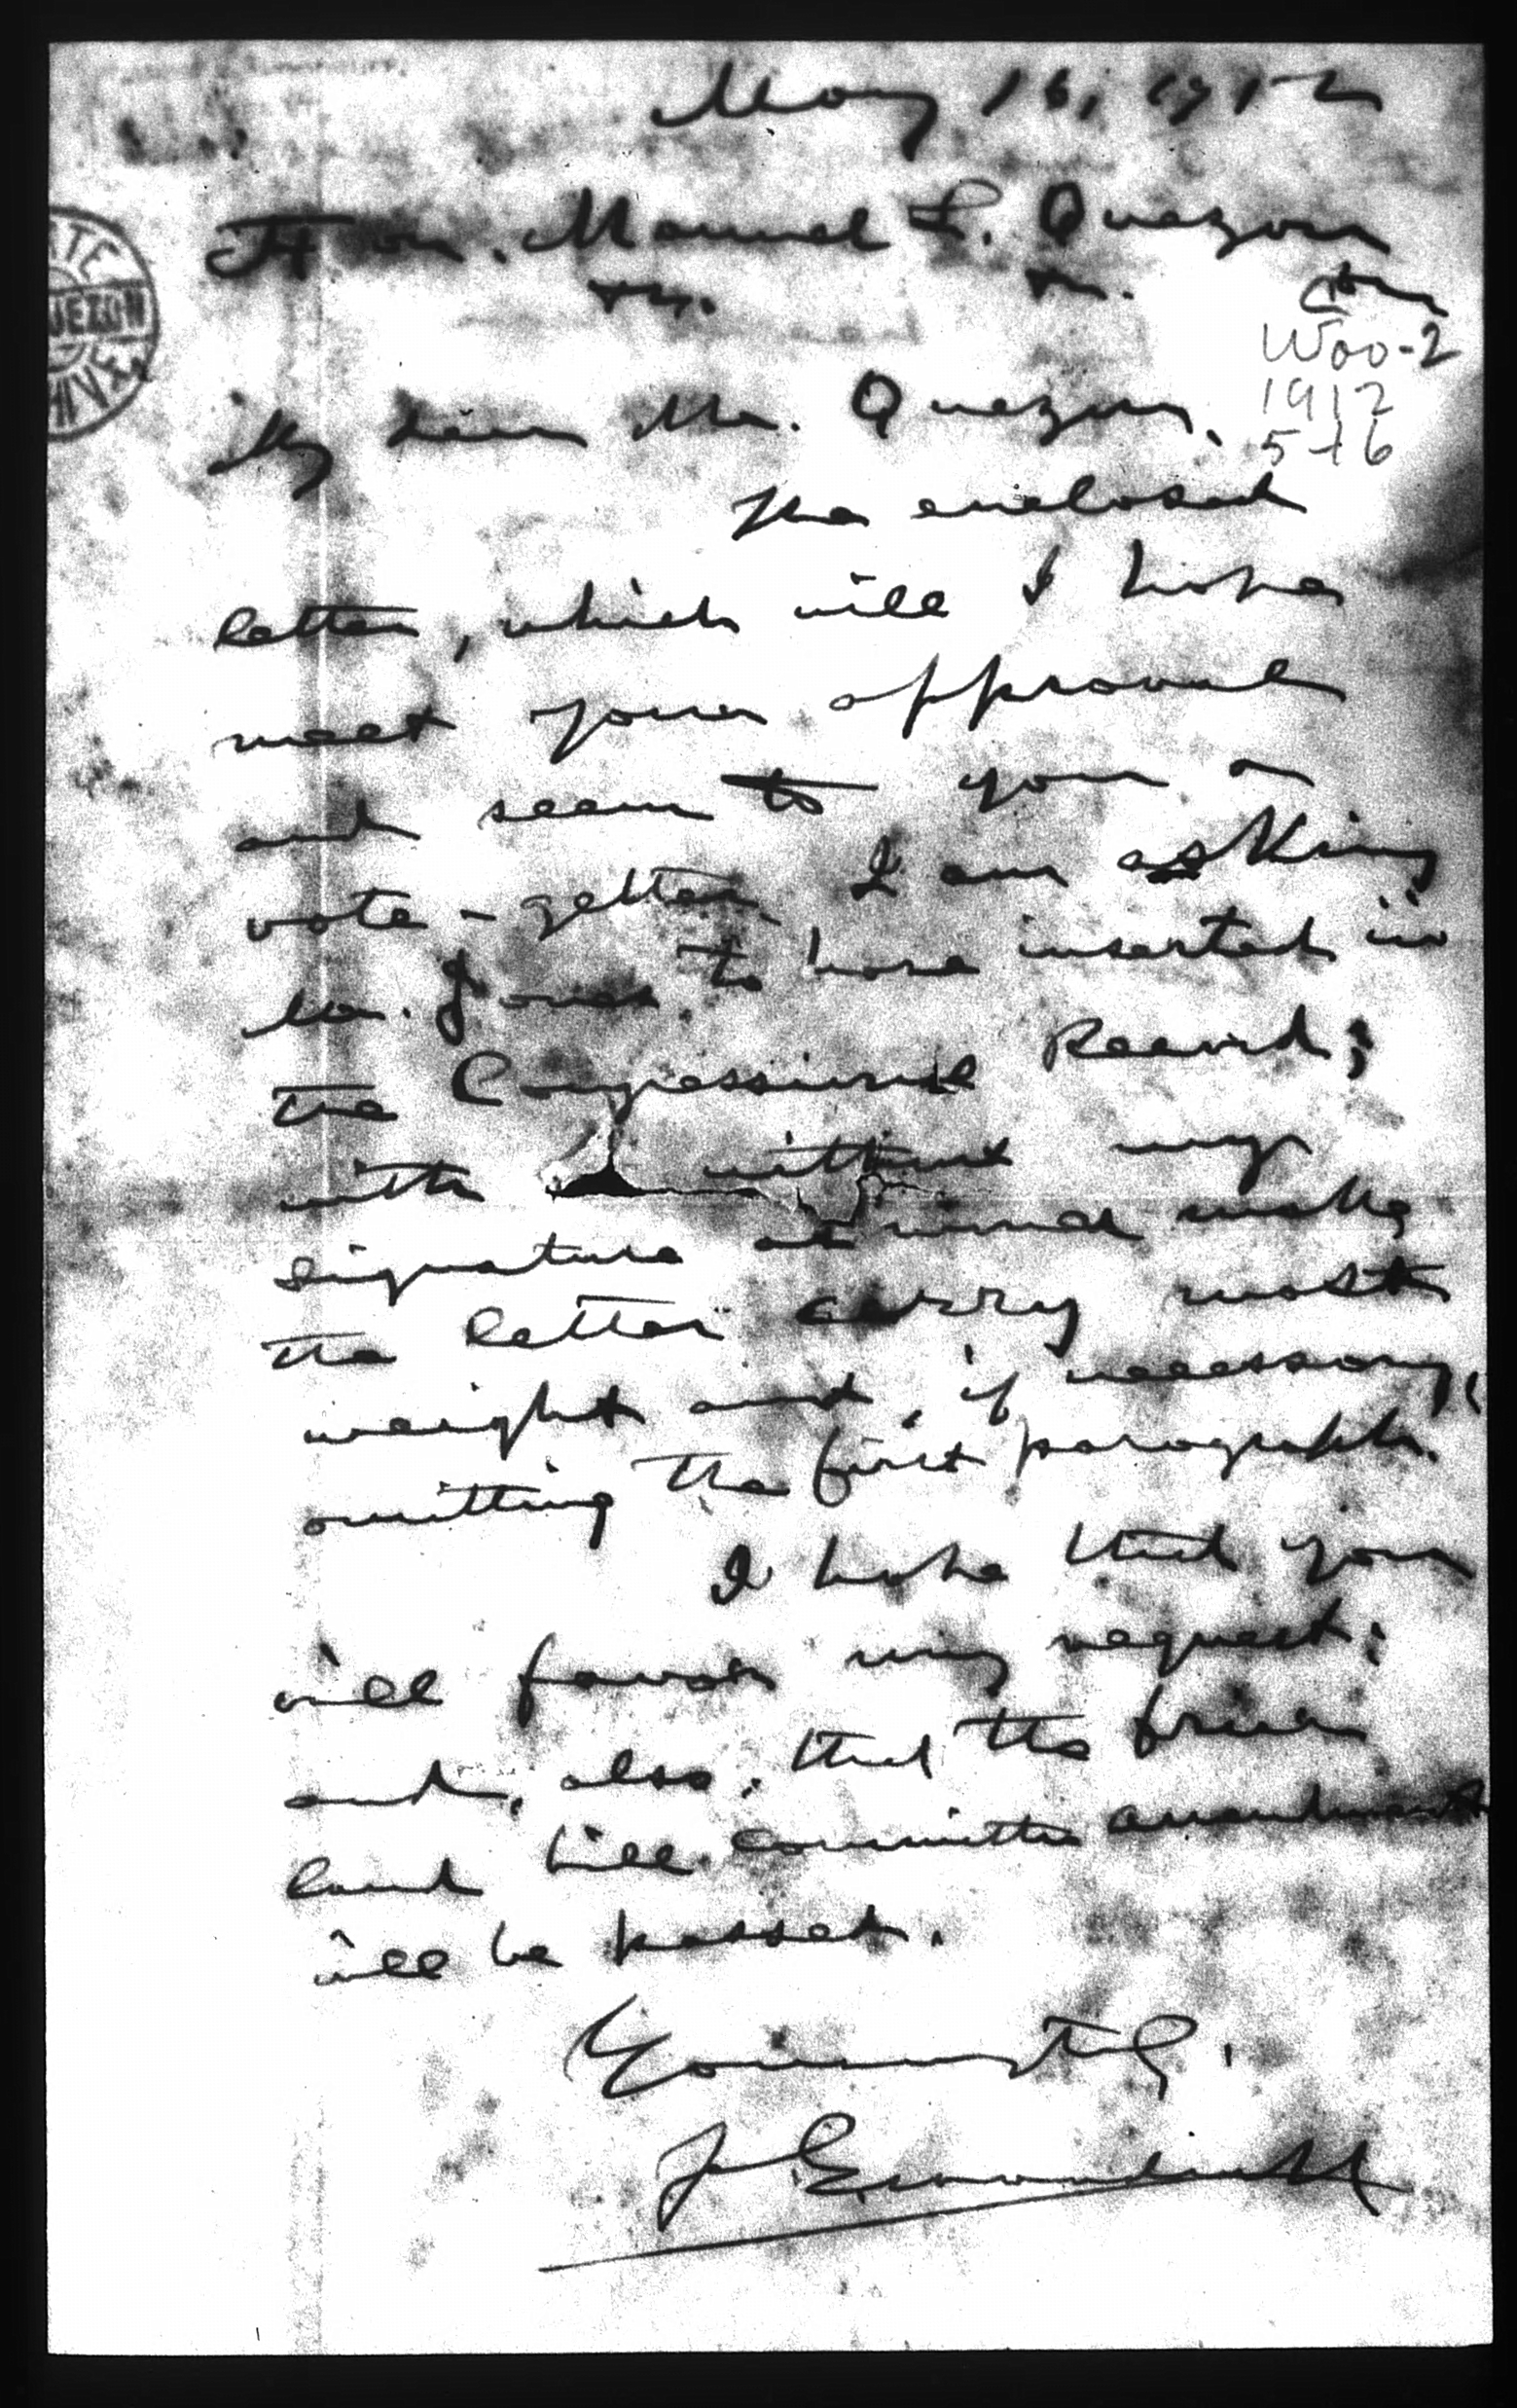 May 16, 1912
Hon. Manuel L. Quezon
Woo-2
1912
5-16
QUEZON
My dear Mr. Quezon,
The enclosed
letter, which will I hope
meet your approval
and seem to you a
vote-getter I am asking
Mr. Jones to have inserted in
the Congressional Record;
with without my
signature as would make
the letter carry most
weight and, if necessary,
omitting the first paragraph.
I hope that you
will favor my request;
and, also, that the friar
land bill committee amendment
will be passed.
Yours truly,